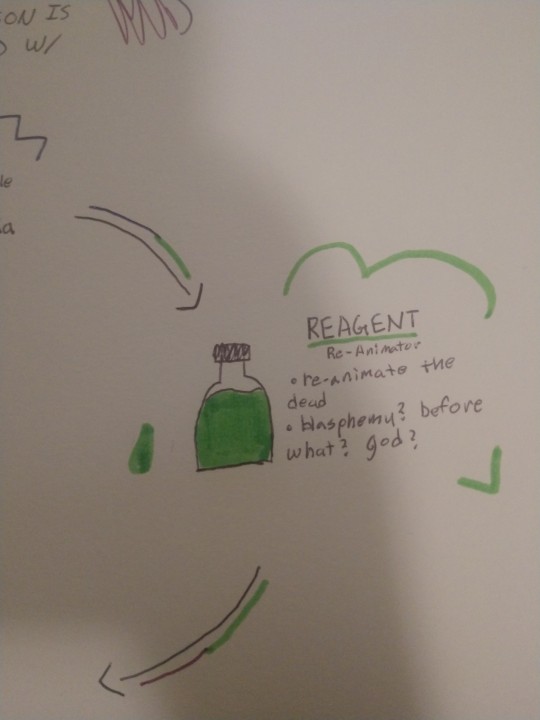 ON IS
W/
REAGENT
Re-Animator
• re-animate the
dead
• blasphemy? before
what? god?